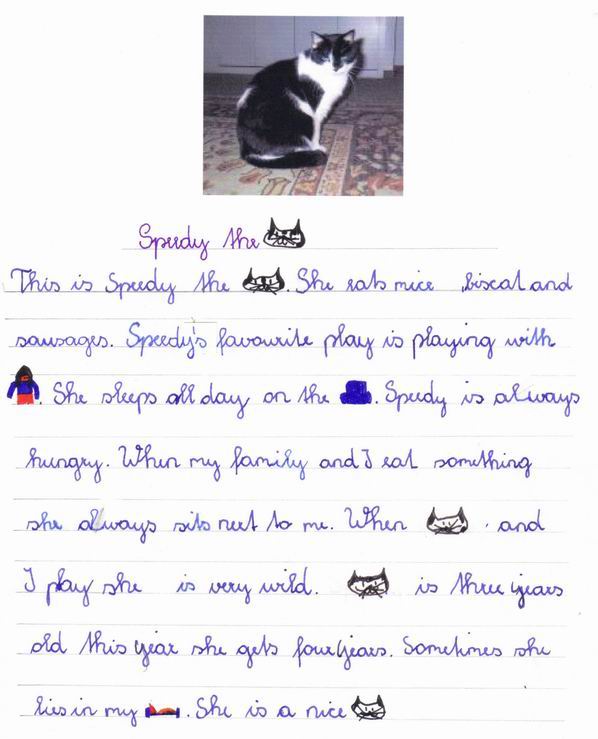 Speedy the
This is Speedy the . She eats mice , biscat and
sausages. Speedy's favourite play is playing with
. She sleeps all day on the . Speedy is always
hungry. When my family and I eat something
she always sits next to me. When . and
I play she is very wild. is three years
old this year she gets four years. Sometimes she
lies in my . She is a nice